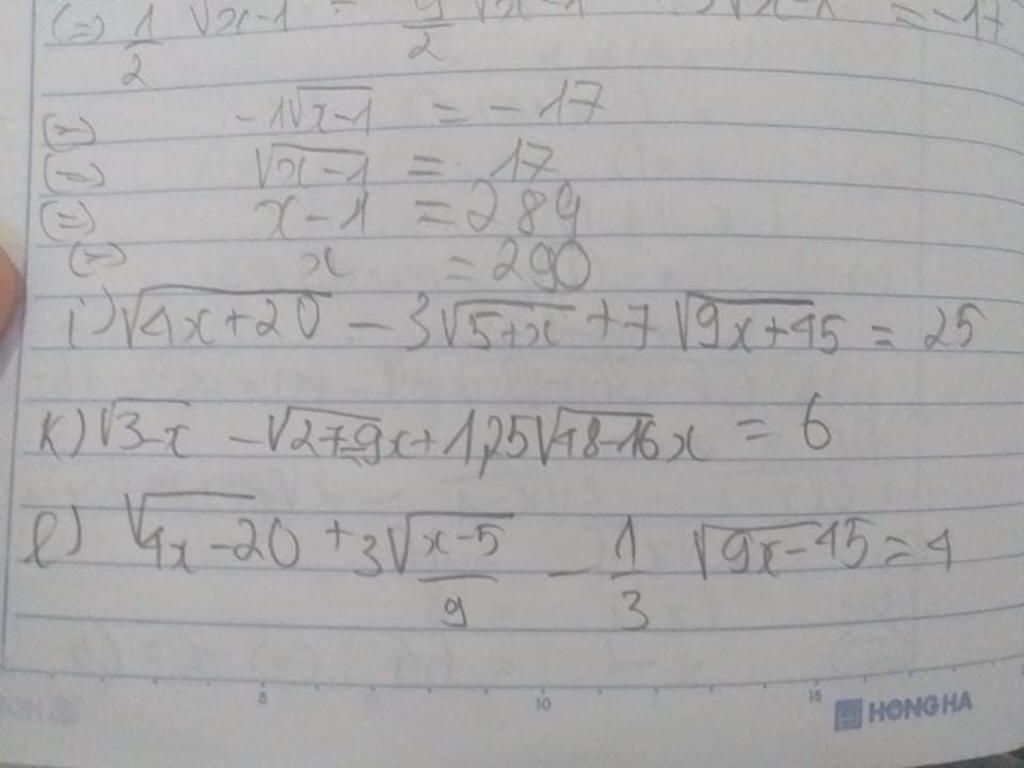 (=) 1/2 √x-1 - 9/2 √x-1 3√x-1 = -17
(=) -1√x-1 = -17
(=) √x-1 = 17
(=) x-1 = 289
(=) x = 290
i) √4x+20 - 3√5+x + 7√9x+45 = 25
k) √3-x - √27-9x + 1,25√48-16x = 6
l) √4x-20 + 3√x-5/9 - 1/3 √9x-45 = 4
5 10 15
HONG HA